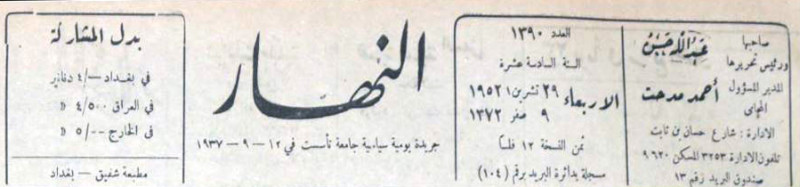 صاحبها
ورئيس تحريرها
عبد الله حسن
المدير المسؤول
المحامي
أحمد مدحت
الادارة : شارع حسان بن ثابت
تلفون الادارة ٣٢٥٣ المسكن ٩٦٢٠
صندوق البريد رقم ١٣
العدد ١٣٩٠
السنة السادسة عشرة
الاربعاء
٢٩ تشرين١ ١٩٥٢
٩ صفر ١٣٧٢
ثمن النسخة ١٢ فلسا
مسجلة بدائرة البريد برقم (١٠٤)
النهار
جريدة يومية سياسية جامعة تأسست في ١٢ - ٩ - ١٩٣٧
بدل المشاركة
في بغداد -/٤ دنانير
في العراق ٤/٥٠٠ »
في الخارج ٥/٠٠ »
مطبعة شفيق - بغداد